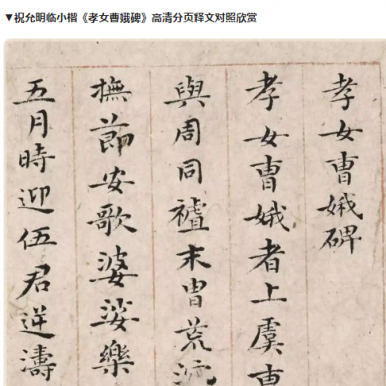 ▼祝允明临小楷《孝女曹娥碑》高清分页释文对照欣赏
孝女曹娥碑
孝女曹娥者上虞曹
與周同禇末胄荒沉
撫節安歌婆娑樂
五月時迎伍君逆濤